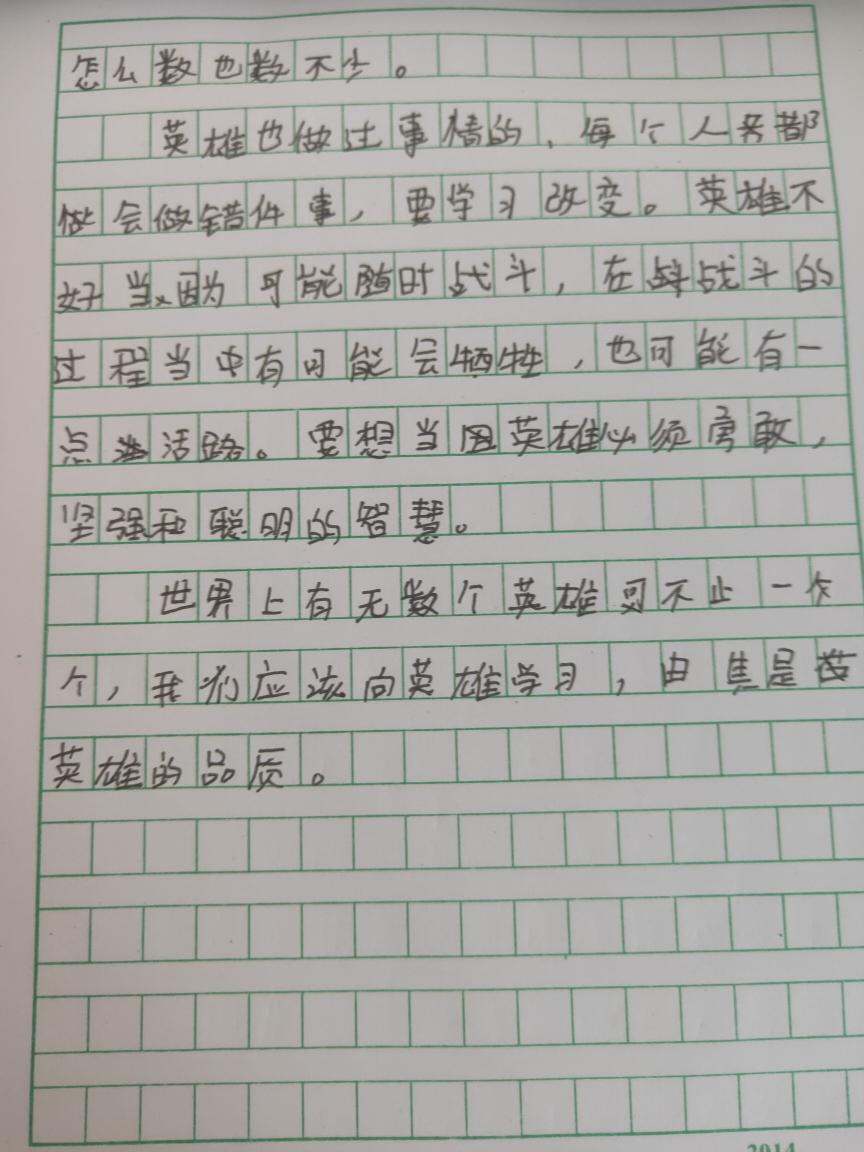 怎么数也数不少。
英雄也做过事情的，每个人都
会做错件事，要学习改变。英雄不
好当，因为可能随时战斗，在战斗的
过程当中有可能会牺牲，也可能有一
点活路。要想当英雄必须勇敢，
坚强和聪明的智慧。
世界上有无数个英雄可不止一
个，我们应该向英雄学习，由焦是
英雄的品质。
2014